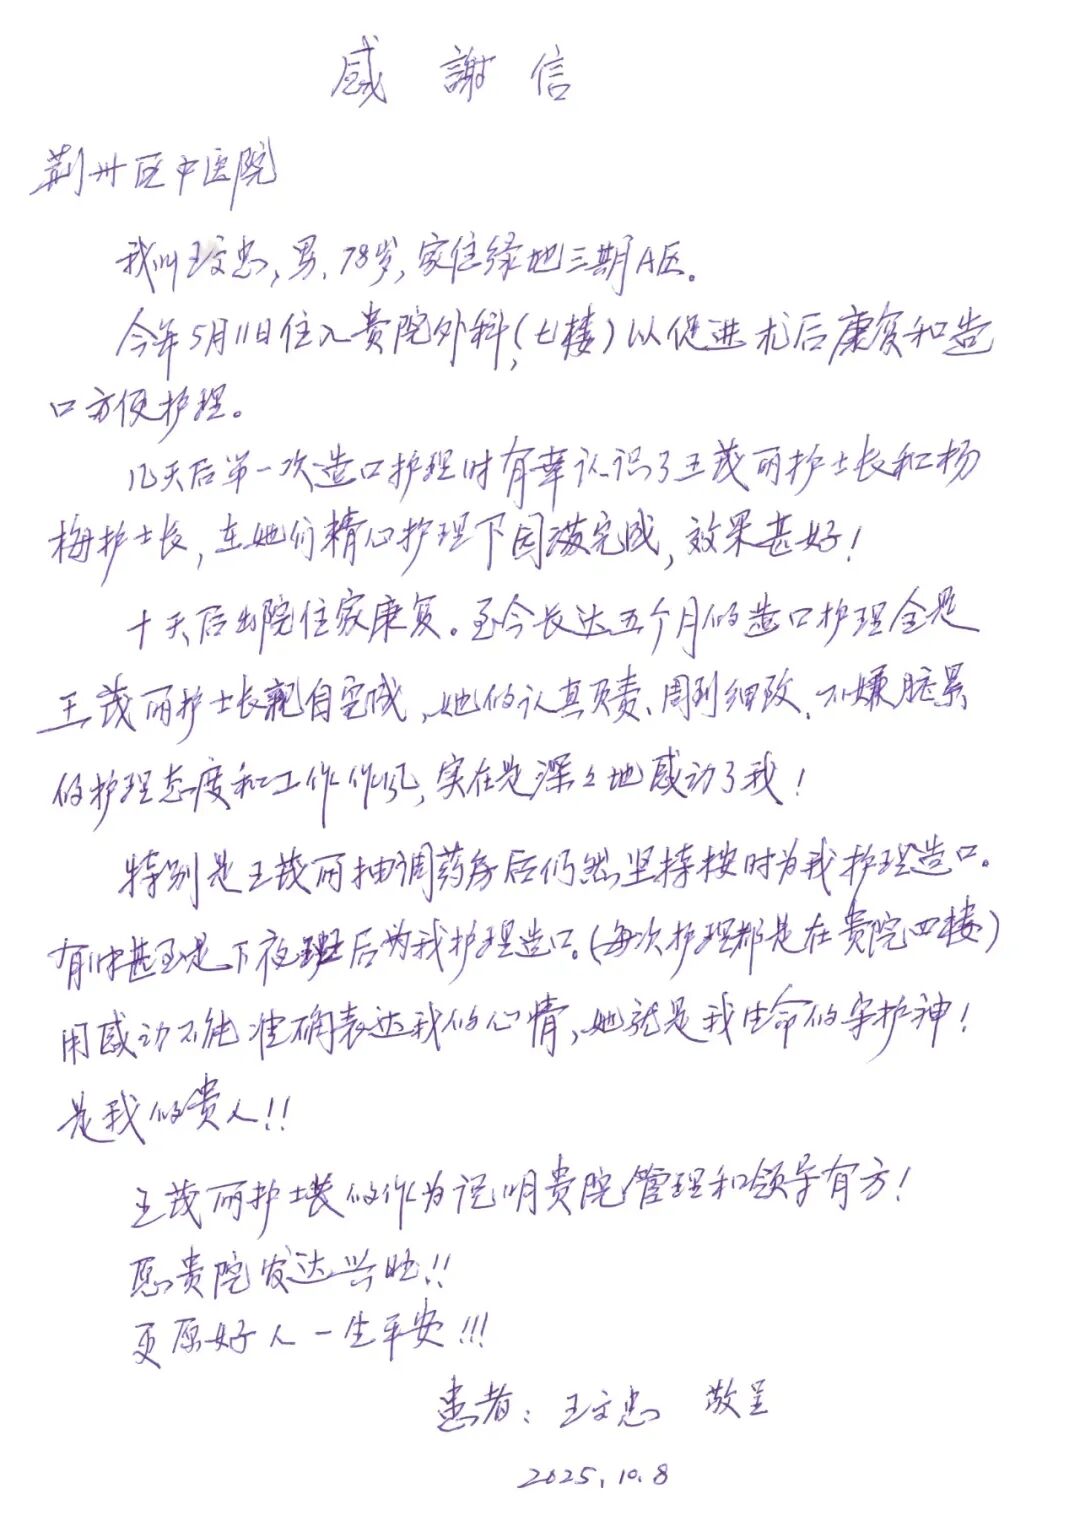 感謝信
荆州区中医院
我叫王文忠,男,78岁,家住绿地三期A区。
今年5月11日住入贵院外科(七楼)以促进术后康复和造
口方便护理。
几天后第一次造口护理时有幸认识了王茂丽护士长和杨
梅护士长,在她们精心护理下圆满完成,效果甚好!
十天后出院住家康复。至今长达五个月的造口护理全是
王茂丽护士长亲自完成、她的认真负责、周到细致、不嫌脏累
的护理态度和工作作风,实在是深々地感动了我!
特别是王茂丽抽调药房后仍然坚持按时为我护理造口。
有时甚至是下夜班后为我护理造口。(每次护理都是在贵院四楼)
用感动不能准确表达我的心情,她就是我生命的守护神!
是我的贵人!!
王茂丽护士长的作为说明贵院管理和领导有方!
愿贵院发达兴旺!!
更原好人一生平安!!!
患者:王文忠 敬呈
2025.10.8